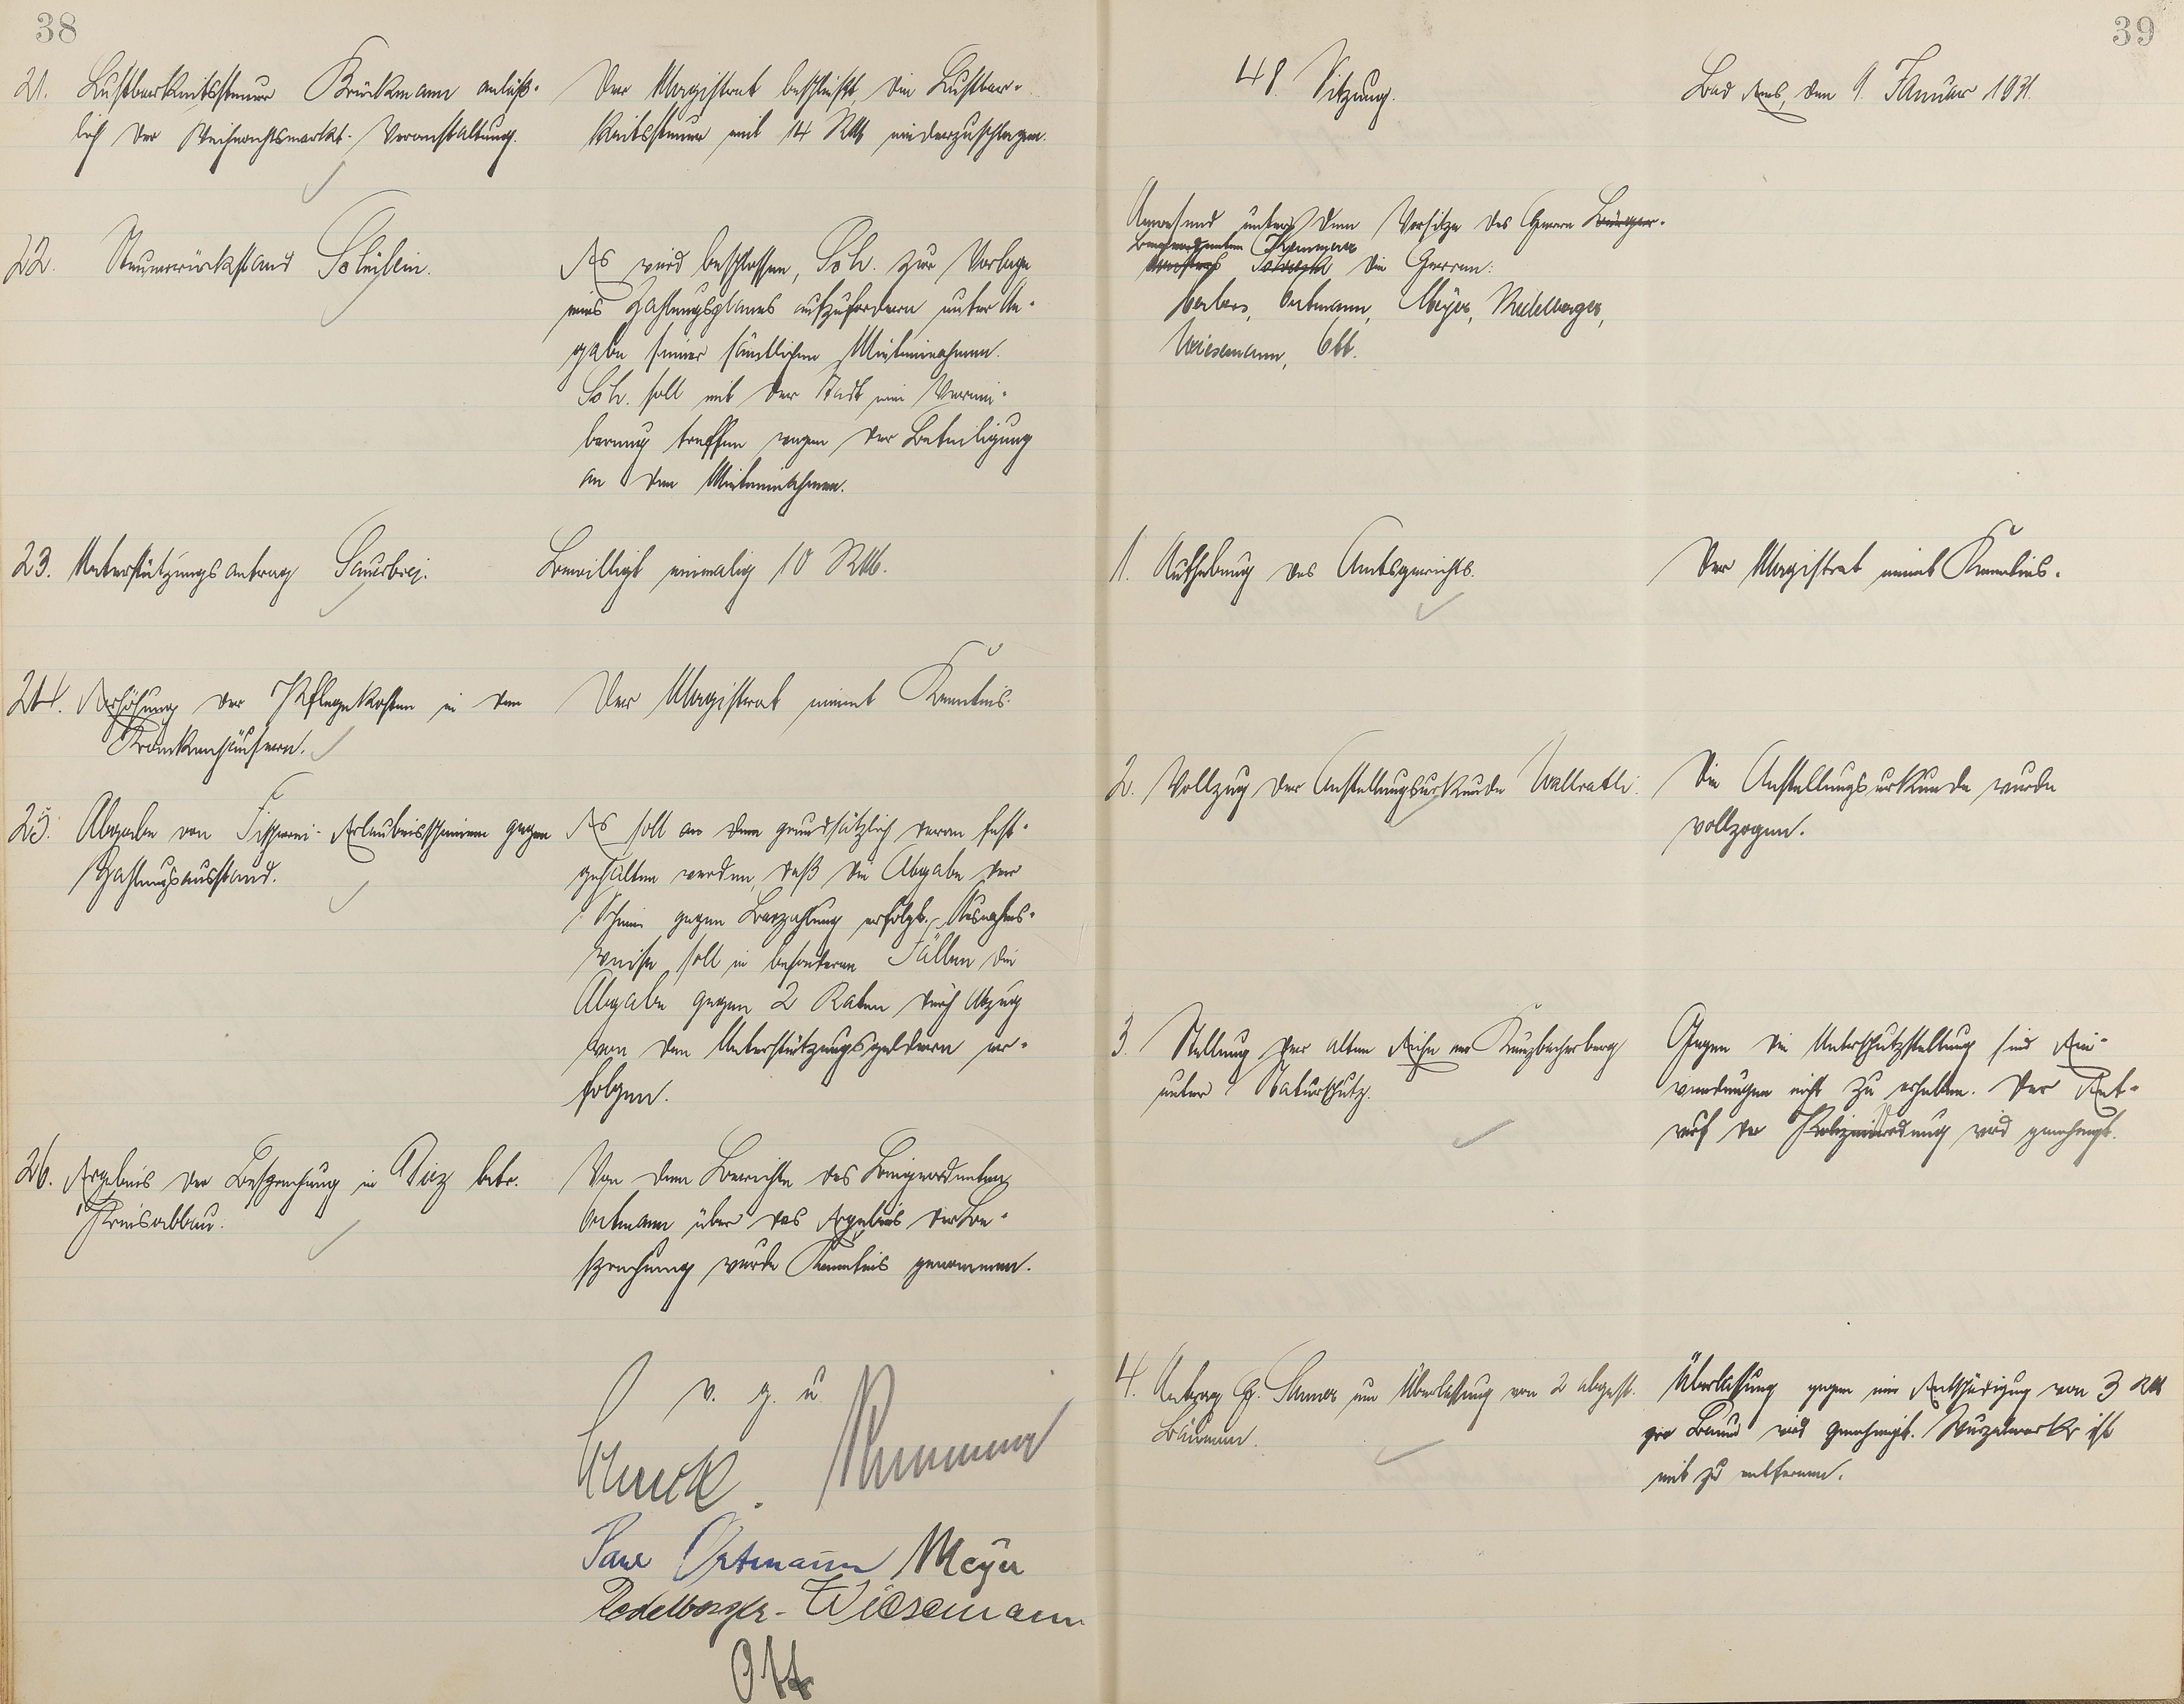 38
21. Lustbarkeitssteuer Brückmann anläß-
lich der Weihnachtsmarkt-Veranstaltung.
Der Magistrat beschließt, die Lustbar-
keitssteuer mit 14 RM niederzuschlagen.
22. Steuerrückstand
Es wird beschlossen, Sch. zur Vorlage
eines Zahlungsplanes aufzufordern unter An-
gabe seiner sämtlichen Mieteinnahmen.
Sch. soll mit der Stadt eine Verein-
barung treffen wegen der Beteiligung
an den Mieteinnahmen.
23. Unterstützungsantrag Sauerbrej.
Bewilligt einmalig 10 RM.
24. Erhöhung der Pflegekosten in den
Krankenhäusern.
Der Magistrat nimmt Kenntnis.
25. Abgabe von Fischerei-Erlaubnisscheinen gegen
Zahlungsausstand.
Es soll an dem grundsätzlich daran fest-
gehalten werden, daß die Abgabe der
Scheine gegen Barzahlung erfolgt. Ausnahms-
weise soll in besonderen Fällen die
Abgabe gegen 2 Raten durch Abzug
von den Unterstützungsgeldern er-
folgen.
26. Ergebnis der Besprechung in Diez betr.
Preisabbau.
Von dem Berichte des Beigeordneten
Ortmann über das Ergebnis der Be-
sprechung wurde Kenntnis genommen.
v. g. u.
Schreck.
Paul Ortmann Meyer
Redelberger - Wiesemann
Ott
39
48. Sitzung.
Bad Ems, den 9. Januar 1931.
Anwesend unter dem Vorsitze des Herrn Bürger-
Beigeordneten
meisters Schreck die Herren:
Ortmann, Meyer, Redelberger,
Wiesemann, Ott.
1. Aufhebung des Amtsgerichts.
Der Magistrat nimmt Kenntnis.
2. Vollzug der Anstellungsurkunde Wallrath.
Die Anstellungsurkunde wurde
vollzogen.
3. Stellung der alten Eiche am
unter Naturschutz.
Gegen die Unterschutzstellung sind Ein-
wendungen nicht zu erheben. Der Ent-
wurf der wird genehmigt.
4. Antrag G. um Überlassung von 2 abgest.
Bäumen.
Überlassung gegen eine Entschädigung von 3 RM
pro Baum wird genehmigt. Wurzelwerk ist
mit zu entfernen.